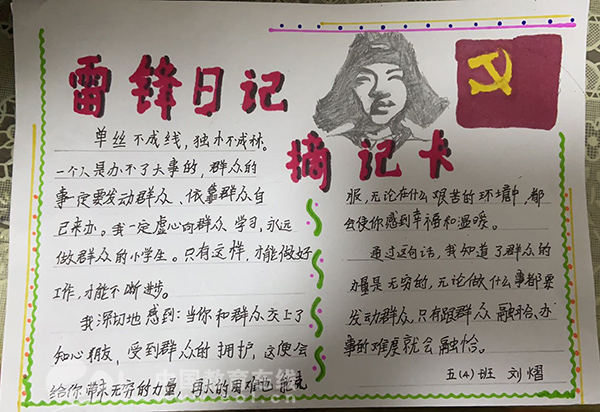 雷锋日记
摘记卡
单丝不成线，独木不成林。
一个人是办不了大事的，群众的
事一定要发动群众、依靠群众自
己来办。我一定虚心向群众学习，永远
做群众的小学生。只有这样，才能做好
工作，才能不断进步。
我深切地感到：当你和群众交上了
知心朋友，受到群众的拥护，这便会
给你带来无穷的力量，再大的困难也能克
服，无论在什么艰苦的环境中，都
会使你感到幸福和温暖。
通过这句话，我知道了群众的
力量是无穷的，无论做什么事都要
发动群众，只有跟群众融洽、办
事的难度就会融洽。
五(4)班 刘熠
中国教育在线